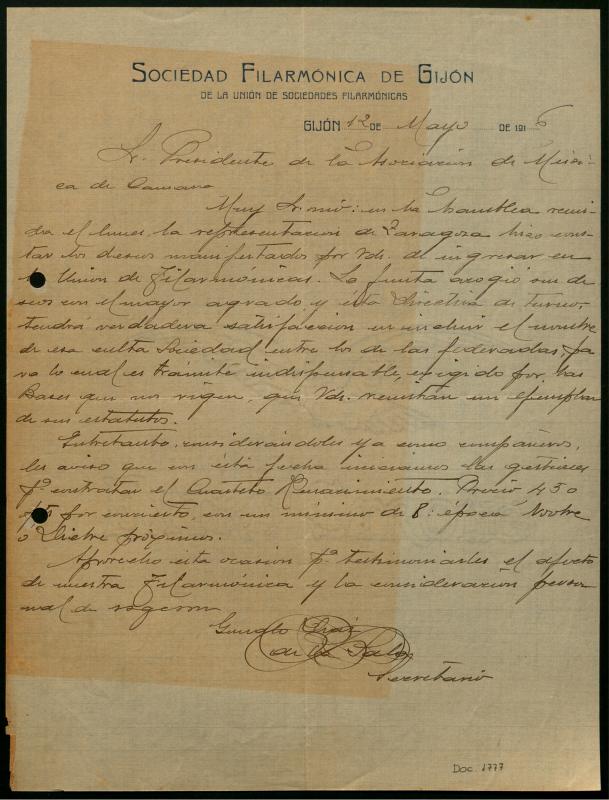 SOCIEDAD FILARMÓNICA DE GIJÓN
DE LA UNIÓN DE SOCIEDADES FILARMÓNICAS
GIJÓN 12 DE Mayo DE 1916
Sr. Presidente de la Asociación de Músi-
ca de Camara
Muy Sr. mio: en la Asamblea reuni-
da el lunes, la representacion de Zaragoza hizo cons-
tar los deseos manifestados por Vds. de ingresar en
la Union de Filarmónicas. La Junta acogió sus de-
seos con el mayor agrado y esta Directiva de turno,
tendrá verdadera satisfaccion en incluir el nombre
de esa culta Sociedad entre los de las federadas, pa-
ra lo cual es trámite indispensable, exigido por las
Bases que nos rigen, que Vds. remitan un ejemplar
de sus estatutos.
Entretanto, considerándoles ya como compañeros,
les aviso que con esta fecha iniciamos las gestiones
pª contratar el Cuarteto Renacimiento. Precio 450
pts por concierto, con un minimo de 8: época Novbre
o Dicbre próximos.
Aprovecho esta ocasion pª testimoniarles el afecto
de nuestra Filarmónica y la consideracion perso-
nal de s.s.q.e.s.m
Díaz
de la
Secretario
Doc. 1777